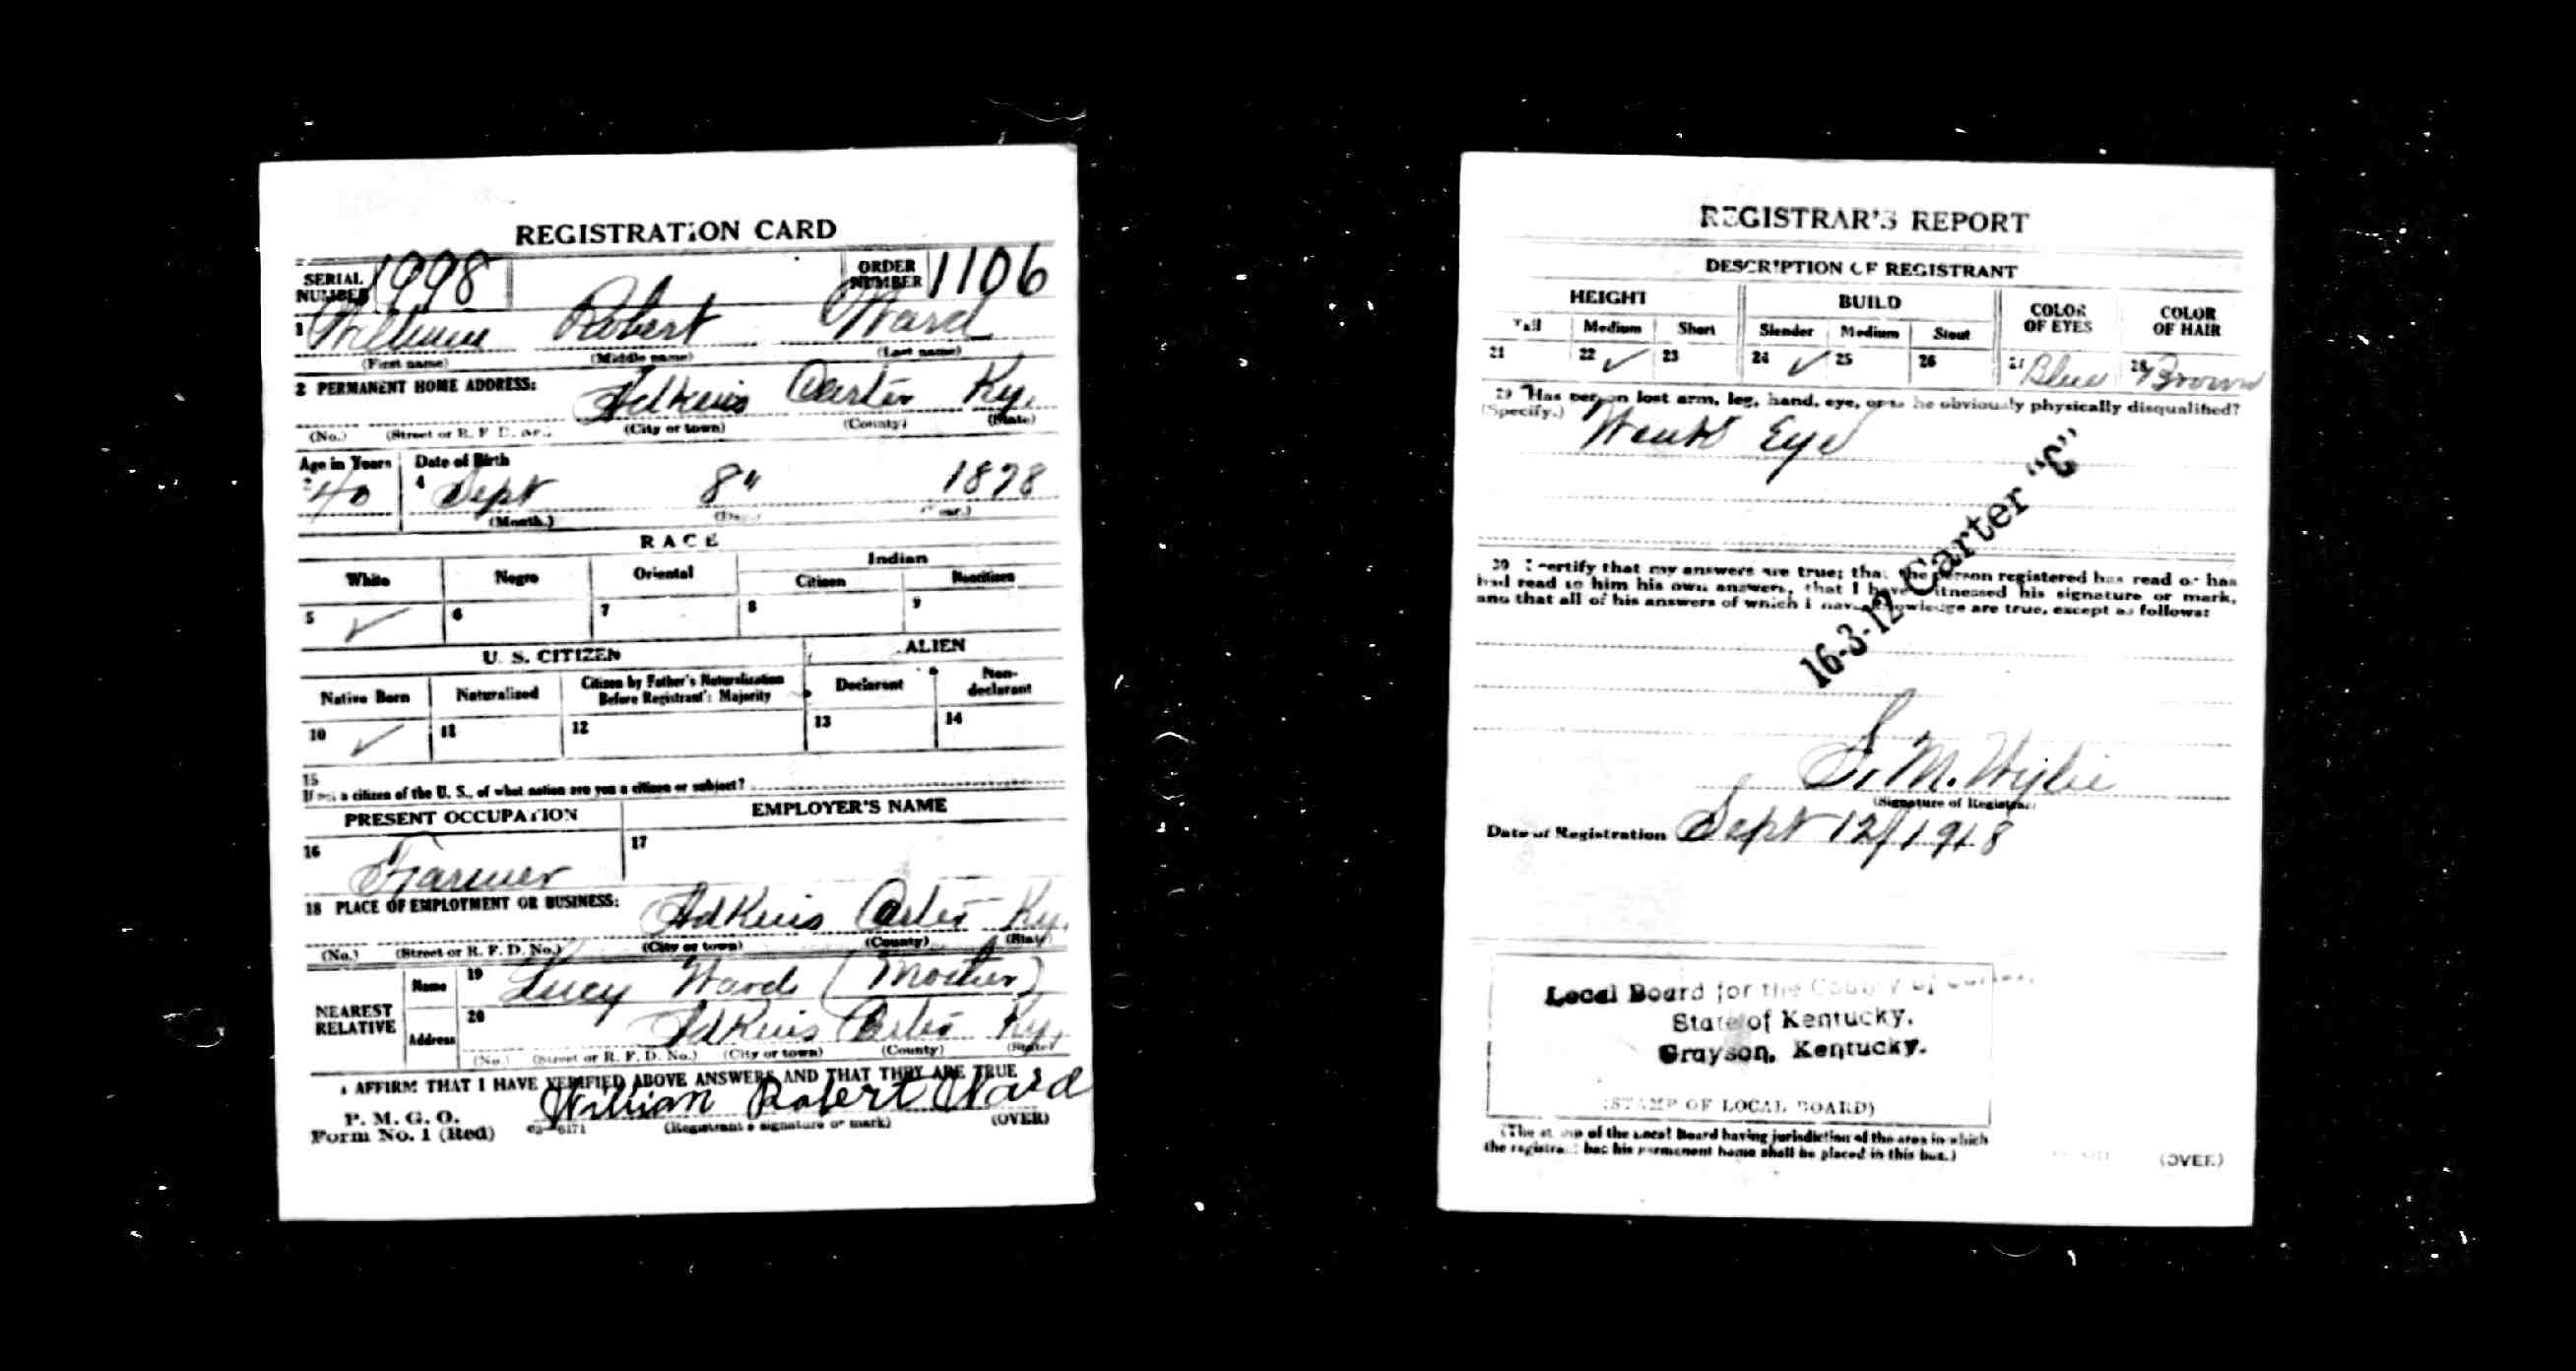 REGISTRATION CARD
SERIAL NUMBER 1998
ORDER NUMBER 1106
1 William Robert Ward
(First name) (Middle name) (Last name)
2 PERMANENT HOME ADDRESS:
Adkins Carter Ky.
(No.) (Street or R. F. D. No.) (City or town) (County) (State)
Age in Years Date of Birth
3 40 4 Sept 8" 1878
(Month.) (Day.) (Year.)
RACE
White Negro Oriental Indian
Citizen Noncitizen
5 ✓ 6 7 8 9
U. S. CITIZEN ALIEN
Native Born Naturalized Citizen by Father's Naturalization Before Registrant's Majority Declarant Non-declarant
10 ✓ 11 12 13 14
15
If not a citizen of the U. S., of what nation are you a citizen or subject?
PRESENT OCCUPATION EMPLOYER'S NAME
16 Farmer 17
18 PLACE OF EMPLOYMENT OR BUSINESS:
Adkins Carter Ky.
(No.) (Street or R. F. D. No.) (City or town) (County) (State)
NEAREST RELATIVE
Name 19 Lucy Ward (Mother)
Address 20 Adkins Carter Ky.
(No.) (Street or R. F. D. No.) (City or town) (County) (State)
I AFFIRM THAT I HAVE VERIFIED ABOVE ANSWERS AND THAT THEY ARE TRUE
P. M. G. O.
Form No. 1 (Red)
William Robert Ward
(Registrant's signature or mark) (OVER)
REGISTRAR'S REPORT
DESCRIPTION OF REGISTRANT
HEIGHT BUILD COLOR OF EYES COLOR OF HAIR
Tall Medium Short Slender Medium Stout
21 22 ✓ 23 24 ✓ 25 26 27 Blue 28 Brown
29 Has person lost arm, leg, hand, eye, or is he obviously physically disqualified?
(Specify.)
Weak Eye
30 I certify that my answers are true; that the person registered has read or has
had read to him his own answers, that I have witnessed his signature or mark,
and that all of his answers of which I have knowledge are true, except as follows:
16-3-12 Carter "C"
S. M. Wylie
(Signature of Registrar)
Date of Registration Sept 12/1918
Local Board for the County of Carter,
State of Kentucky.
Grayson, Kentucky.
(STAMP OF LOCAL BOARD)
(The stamp of the Local Board having jurisdiction of the area in which
the registrant has his permanent home shall be placed in this box.)
(OVER)